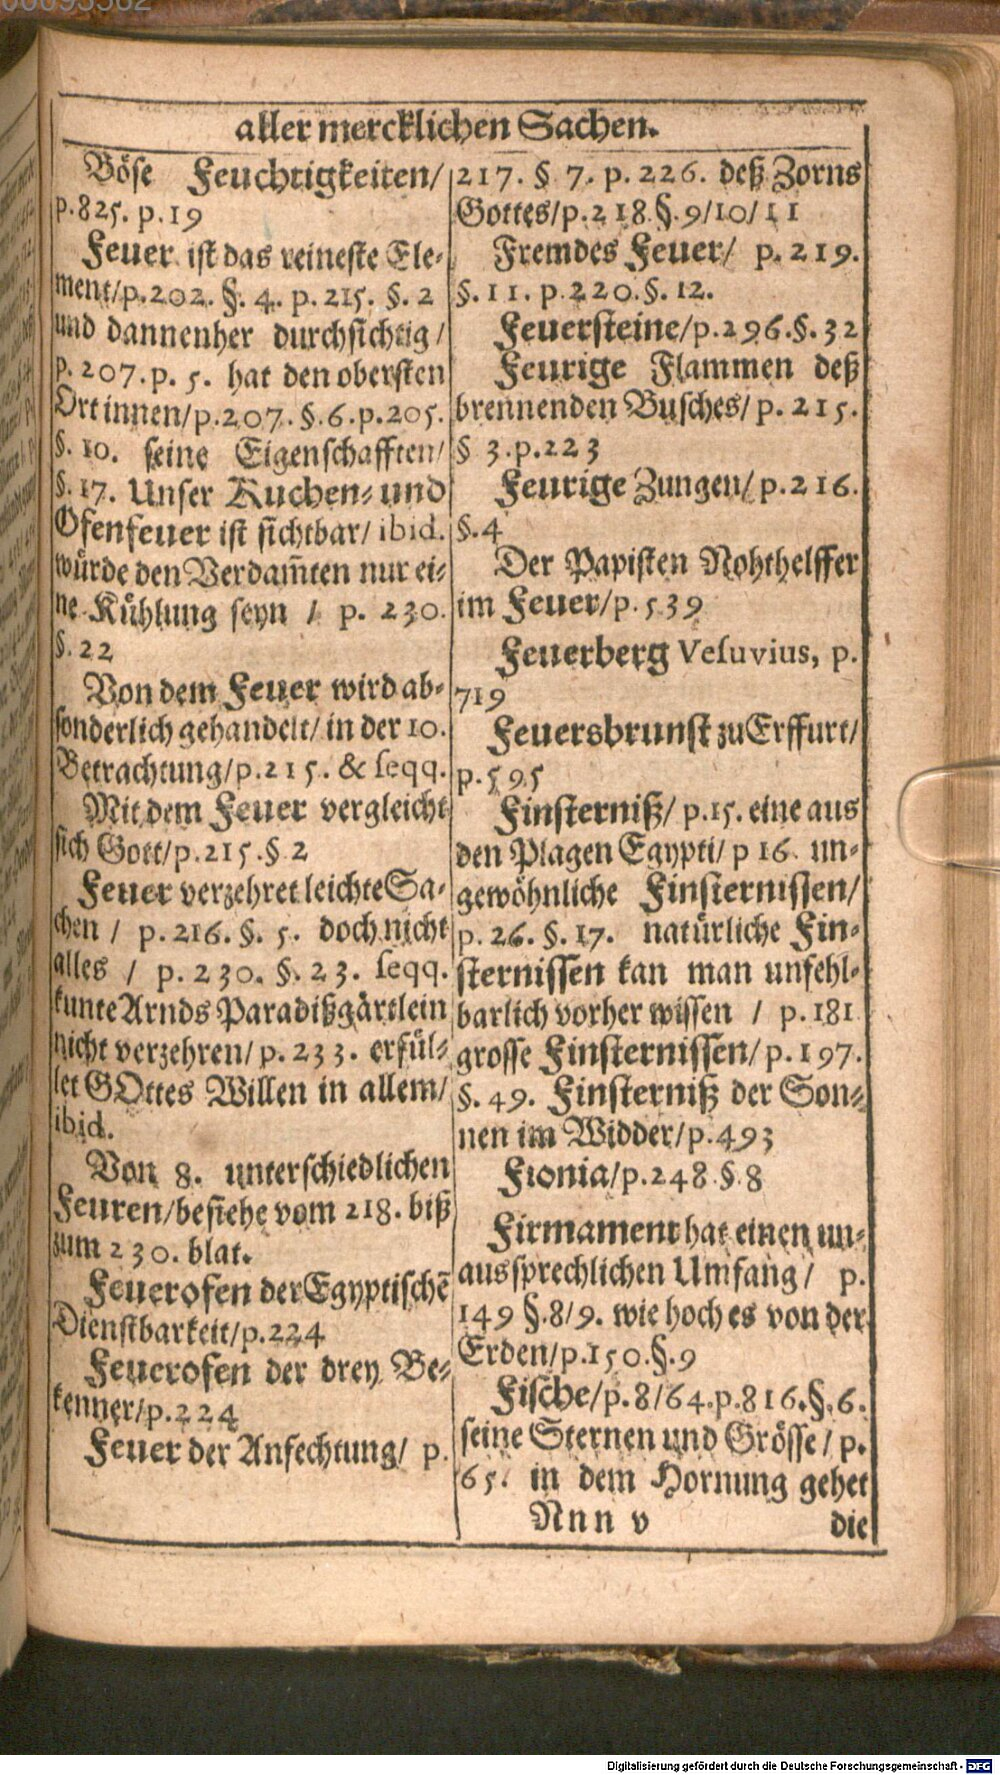 aller mercklichen Sachen.
Böse Feuchtigkeiten/
p.825. p.19
Feuer ist das reineste Ele-
ment/p.202. §. 4. p. 215. §. 2
und dannenher durchsichtig /
p. 207. p. 5. hat den obersten
Ort innen/p.207. §.6.p.205.
§. 10. seine Eigenschafften/
§. 17. Unser Kuchen- und
Ofenfeuer ist sichtbar/ ibid.
würde den Verdam̃ten nur ei-
ne Kühlung seyn / p. 230.
§. 22
Von dem Feuer wird ab-
sonderlich gehandelt/ in der 10.
Betrachtung/p.215. & seqq.
Mit dem Feuer vergleicht
sich Gott/p.215.§ 2
Feuer verzehret leichte Sa-
chen / p. 216. §. 5. doch nicht
alles / p. 230. §. 23. seqq.
kunte Arnds Paradißgärtlein
nicht verzehren/ p. 233. erfül-
let GOttes Willen in allem/
ibid.
Von 8. unterschiedlichen
Feuren/besiehe vom 218. biß
zum 230. blat.
Feuerofen der Egyptischẽ
Dienstbarkeit/p.224
Feuerofen der drey Be-
kenner/p.224
Feuer der Anfechtung/ p.
217. § 7. p. 226. deß Zorns
Gottes/p.218.§.9/10/11
Fremdes Feuer/ p. 219.
§. 11. p.220.§. 12.
Feuersteine/p.296.§. 32
Feurige Flammen deß
brennenden Busches/ p. 215.
§ 3.p.223
Feurige Zungen/ p.216.
§.4
Der Papisten Nohthelffer
im Feuer/p.539
Feuerberg Vesuvius, p.
719
Feuersbrunst zu Erffurt/
p.595
Finsterniß/ p.15. eine aus
den Plagen Egypti/ p 16. un-
gewöhnliche Finsternissen/
p. 26. §. 17. natürliche Fin-
sternissen kan man unfehl-
barlich vorher wissen / p. 181
grosse Finsternissen/p.197.
§. 49. Finsterniß der Son-
nen im Widder/p.493
Fionia/p.248.§.8
Firmament hat einen un-
aussprechlichen Umfang / p.
149 §.8/9. wie hoch es von der
Erden/p.150.§.9
Fische/p.8/64.p.816.§.6.
seine Sternen und Grösse / p.
65. in dem Hornung gehet
Nnn v die
Digitalisierung gefördert durch die Deutsche Forschungsgemeinschaft - DFG